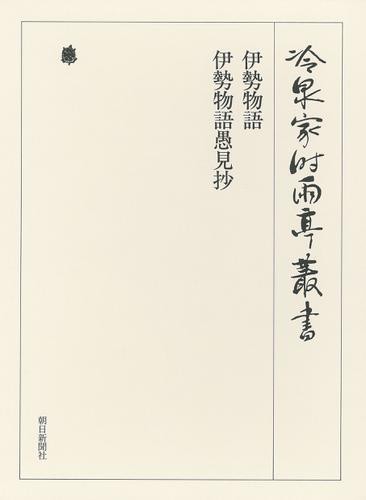 冷泉家时雨亭叢書
伊勢物語
伊勢物語愚見抄
朝日新聞社